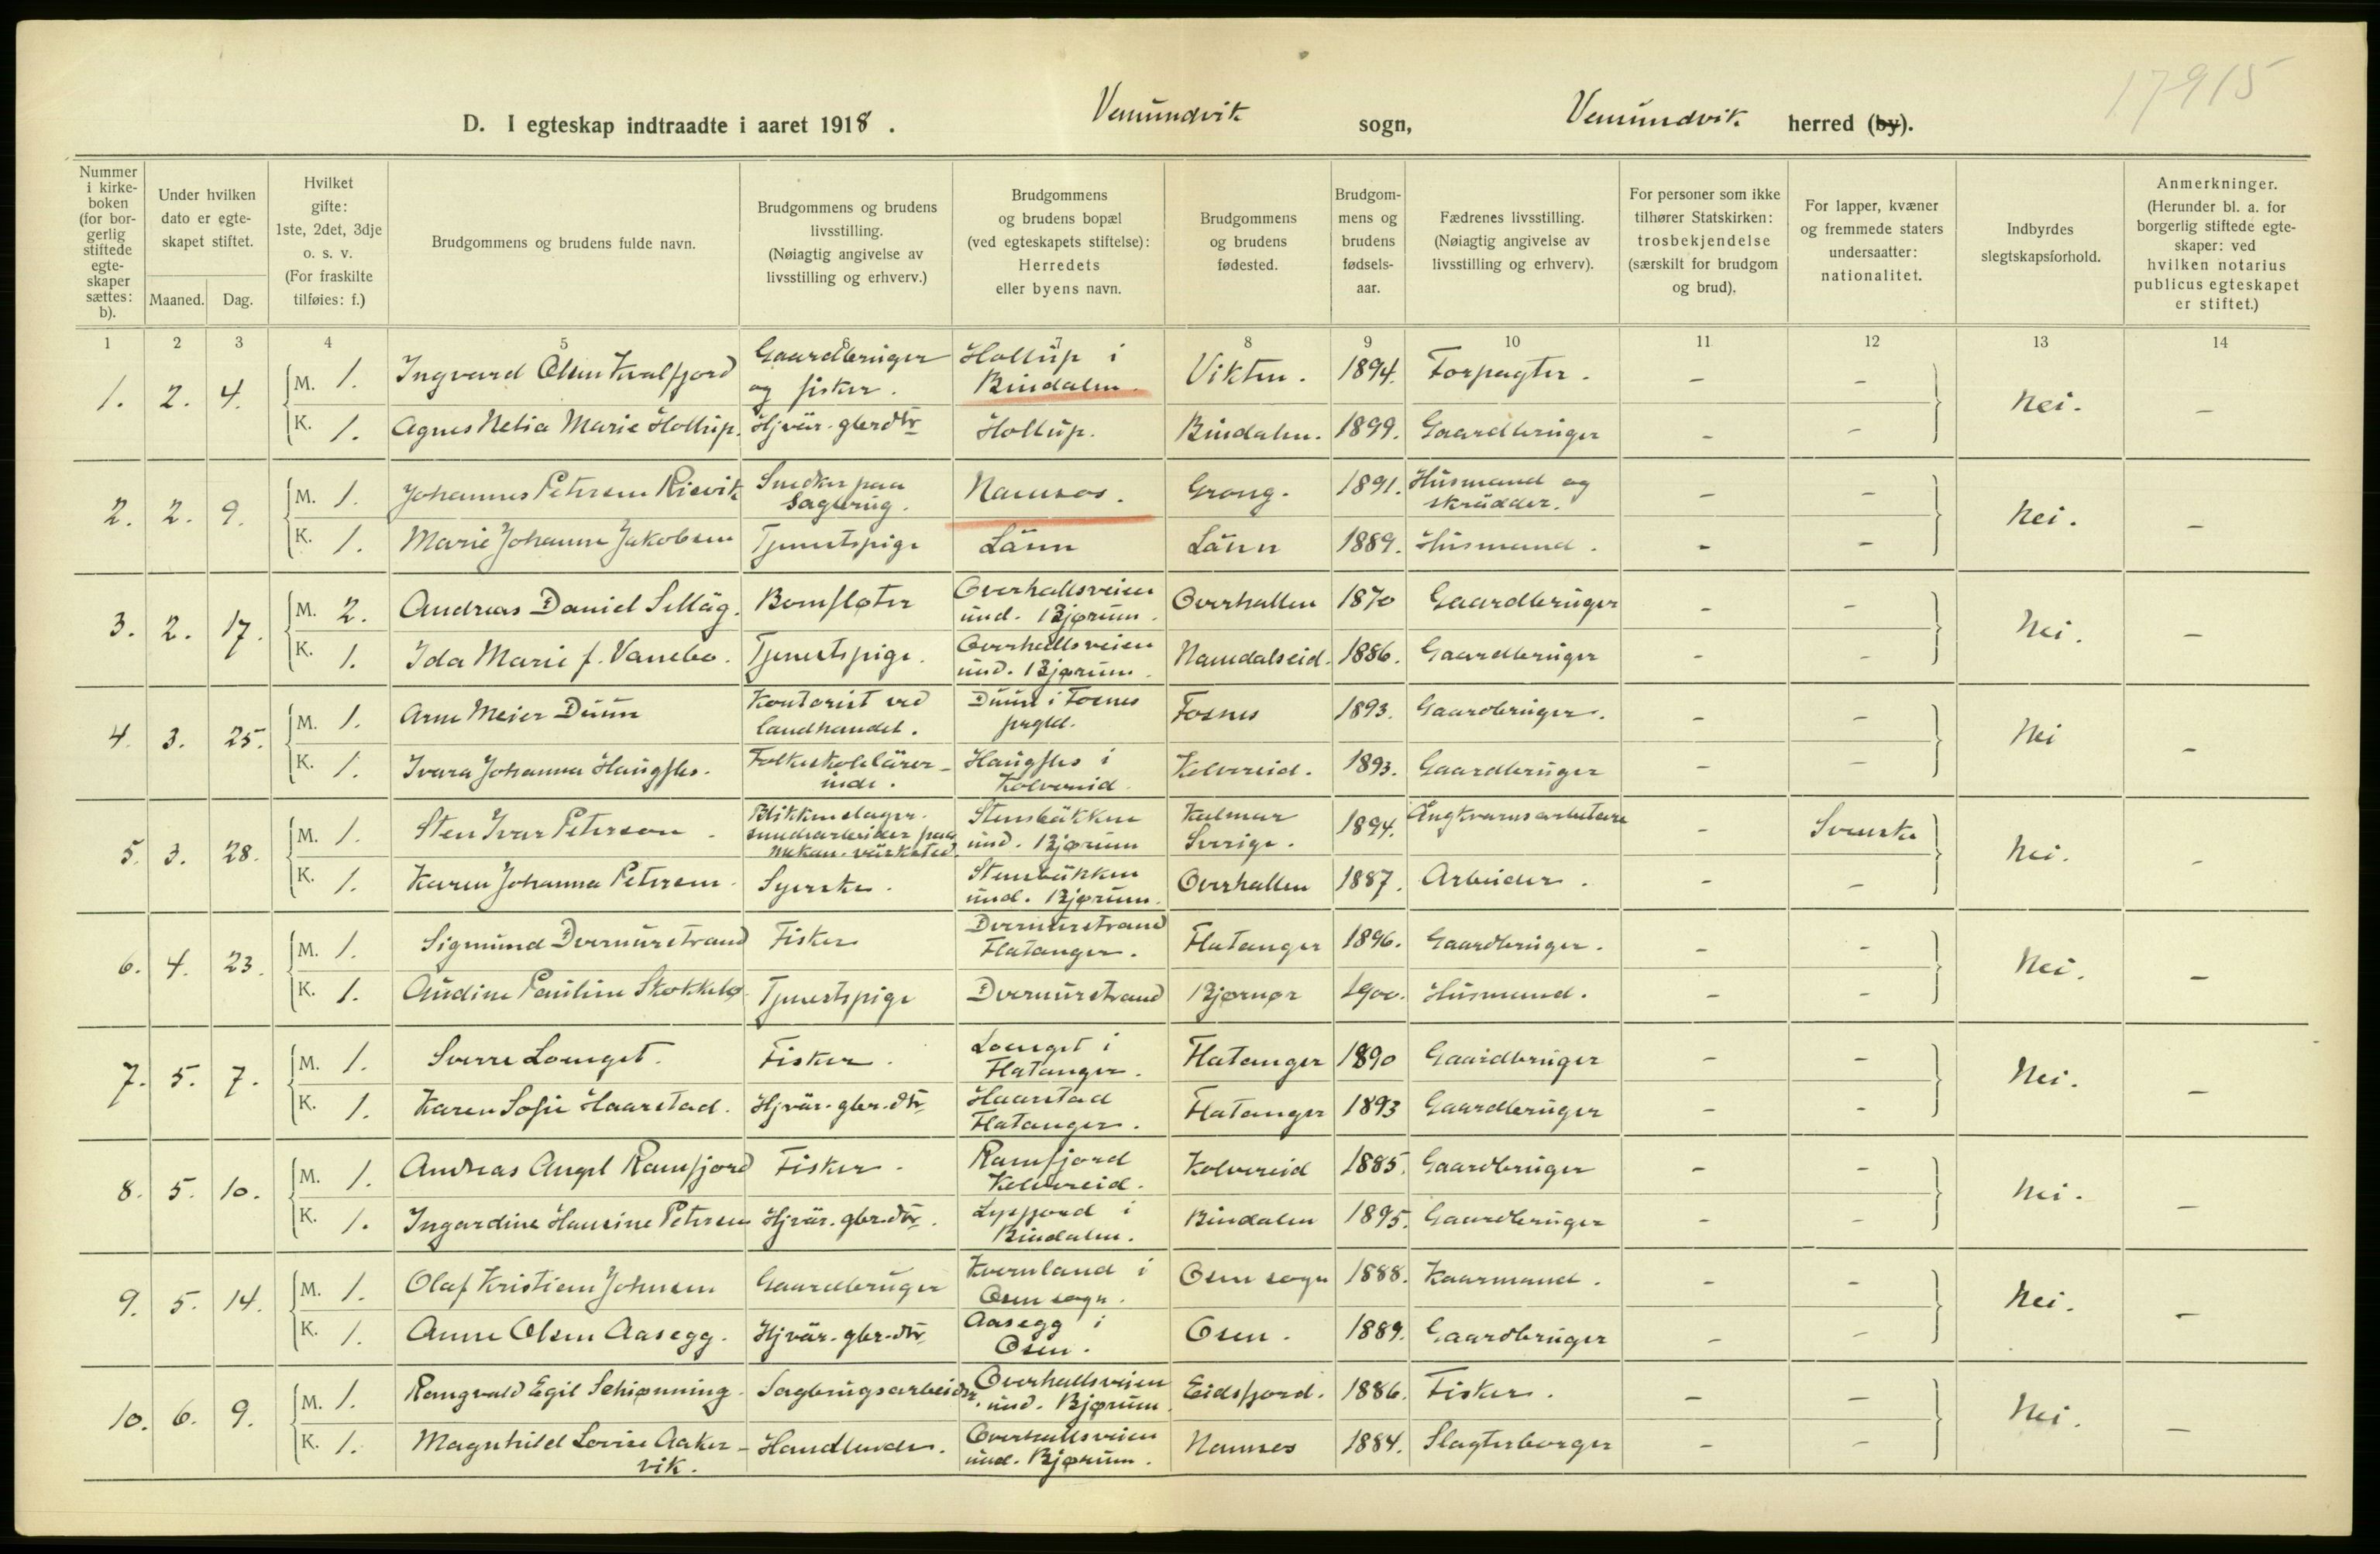 17915
D. I egteskap indtraadte i aaret 1918. Vemundvik sogn, Vemundvik herred (by).
Nummer i kirkeboken (for borgerlig stiftede egteskaper sættes: b). | Under hvilken dato er egteskapet stiftet. Maaned. Dag. | Hvilket gifte: 1ste, 2det, 3dje o. s. v. (For fraskilte tilføies: f.) | Brudgommens og brudens fulde navn. | Brudgommens og brudens livsstilling. (Nøiagtig angivelse av livsstilling og erhverv.) | Brudgommens og brudens bopæl (ved egteskapets stiftelse): Herredets eller byens navn. | Brudgommens og brudens fødested. | Brudgommens og brudens fødselsaar. | Fædrenes livsstilling. (Nøiagtig angivelse av livsstilling og erhverv). | For personer som ikke tilhører Statskirken: trosbekjendelse (særskilt for brudgom og brud). | For lapper, kvæner og fremmede staters undersaatter: nationalitet. | Indbyrdes slegtskapsforhold. | Anmerkninger. (Herunder bl. a. for borgerlig stiftede egteskaper: ved hvilken notarius publicus egteskapet er stiftet.)
1 2 3 4 5 6 7 8 9 10 11 12 13 14
1. 2. 4. M. 1. Ingvard Olsen Kvalfjord Gaardbruger og fisker. Hollup i Bindalen. Vikten. 1894. Forpagter. - - Nei. -
K. 1. Agnes Netia Marie Hollup. Hjvär. gbrdtr Hollup. Bindalen. 1899. Gaardbruger - -
2. 2. 9. M. 1. Johannes Petersen Risvik Snedker paa Sagbrug. Namsos. Grong. 1891. Husmand og skrädder. - - Nei. -
K. 1. Marie Johanne Jakobsen Tjenestpige Länn Länn 1889. Husmand. - -
3. 2. 17. M. 2. Andreas Daniel Selläg. Bomfløter Overhallsveien und. Bjørum. Overhallen 1870 Gaardbruger - - Nei. -
K. 1. Ida Marie f. Vanebo. Tjenestpige. Overhallsveien und. Bjørum. Namdalseid. 1886. Gaardbruger - -
4. 3. 25. M. 1. Arne Meier Duun Kontorist ved landhandel. Duun i Fosnes prgld. Fosnes 1893. Gaardbruger. - - Nei -
K. 1. Ivara Johanna Haugfles. Folkeskolelärerinde. Haugfles i Kolvereid Kolvereid. 1893. Gaardbruger - -
5. 3. 28. M. 1. Sten Ivar Peterson. Blikkenslager. smedarbeider paa mekan. värksted. Stensbäkken und. Bjørum Kalmar Sverige. 1894. Ångkvarnsarbetare - Svenske Nei. -
K. 1. Karen Johanna Petersen. Syerske. Stensbäkken und. Bjørum. Overhallen 1887. Arbeider. - -
6. 4. 23. M. 1. Sigmund Dvernurstrand Fisker Dvernurstrand Flatanger. Flatanger 1896. Gaardbruger. - - Nei. -
K. 1. Audine Pauline Stokkelø Tjenestpige Dvernurstrand Bjørnør 1900. Husmand. - -
7. 5. 7. M. 1. Sverre Lounget. Fisker. Lounget i Flatanger. Flatanger 1890 Gaardbruger - - Nei. -
K. 1. Karen Sofie Haarstad. Hjvär. gbr. dtr Haarstad Flatanger. Flatanger 1893 Gaardbruger - -
8. 5. 10. M. 1. Andreas Angel Ramfjord Fisker. Ramfjord Kolvereid. Kolvereid 1885. Gaardbruger - - Nei. -
K. 1. Ingardine Hansine Petersen Hjvär. gbr. dtr. Lysfjord i Bindalen. Bindalen 1895. Gaardbruger - -
9. 5. 14. M. 1. Olaf Kristian Johnsen Gaardbruger Kvernland i Osen sogn. Osen sogn 1888. Kaarmand. - - Nei. -
K. 1. Anne Olsen Aasegg. Hjvär. gbr. dtr Aasegg i Osen. Osen. 1889. Gaardbruger - -
10. 6. 9. M. 1. Rangvald Egil Schiønning. Sagbrugsarbeider. Overhallsveien und. Bjørum. Eidsfjord. 1886. Fisker. - - Nei. -
K. 1. Magnhild Lovise Aakervik. Handlende. Overhallsveien und. Bjørum. Namsos 1884. Slagterborger - -